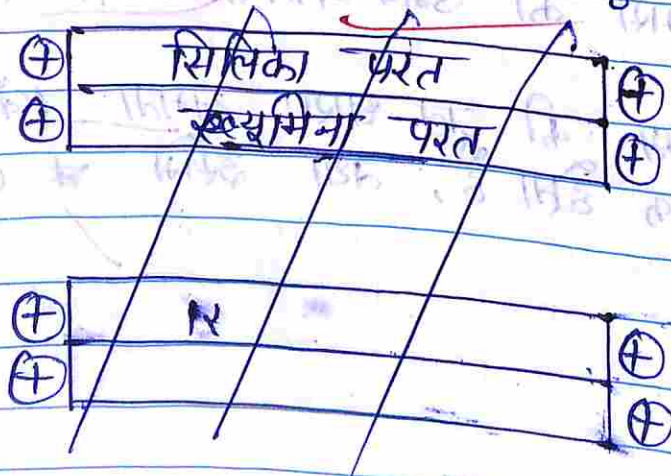 ⊕ सिलिका परत ⊕
⊕ एल्यूमिना परत ⊕
⊕ ⊕
⊕ ⊕